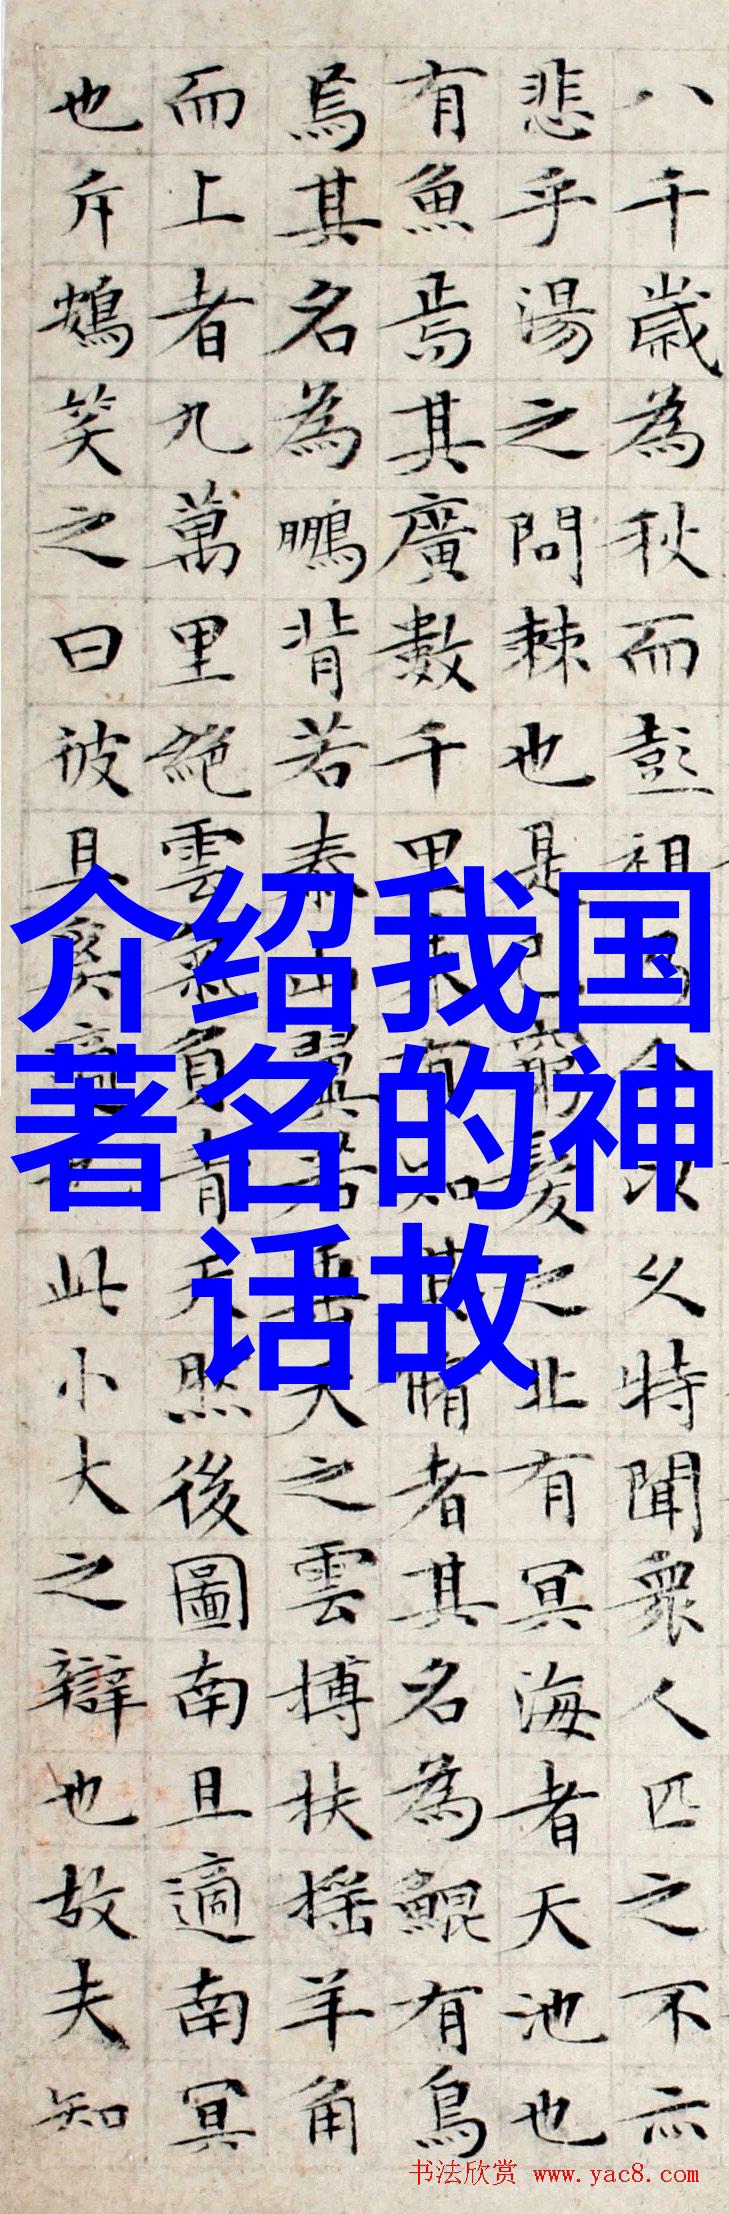 八千歲為秋而彭祖乃今以久特聞衆人匹之不亦
悲乎湯之問棘也是已窮髮之北有冥海者天池也
有魚焉其廣數千里未有知其脩者其名為鯤有鳥
焉其名為鵬背若泰山翼若垂天之雲搏扶搖羊角
而上者九萬里絕雲氣負青天然後圖南且適南冥
也斥鴳笑之曰彼且奚適也此小大之辯也故夫知
介绍我国
著名的神
话故
书法欣赏 www.yac8.com